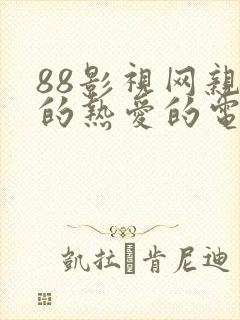 88影視网親
的熱愛的電
凱拉·肯尼迪